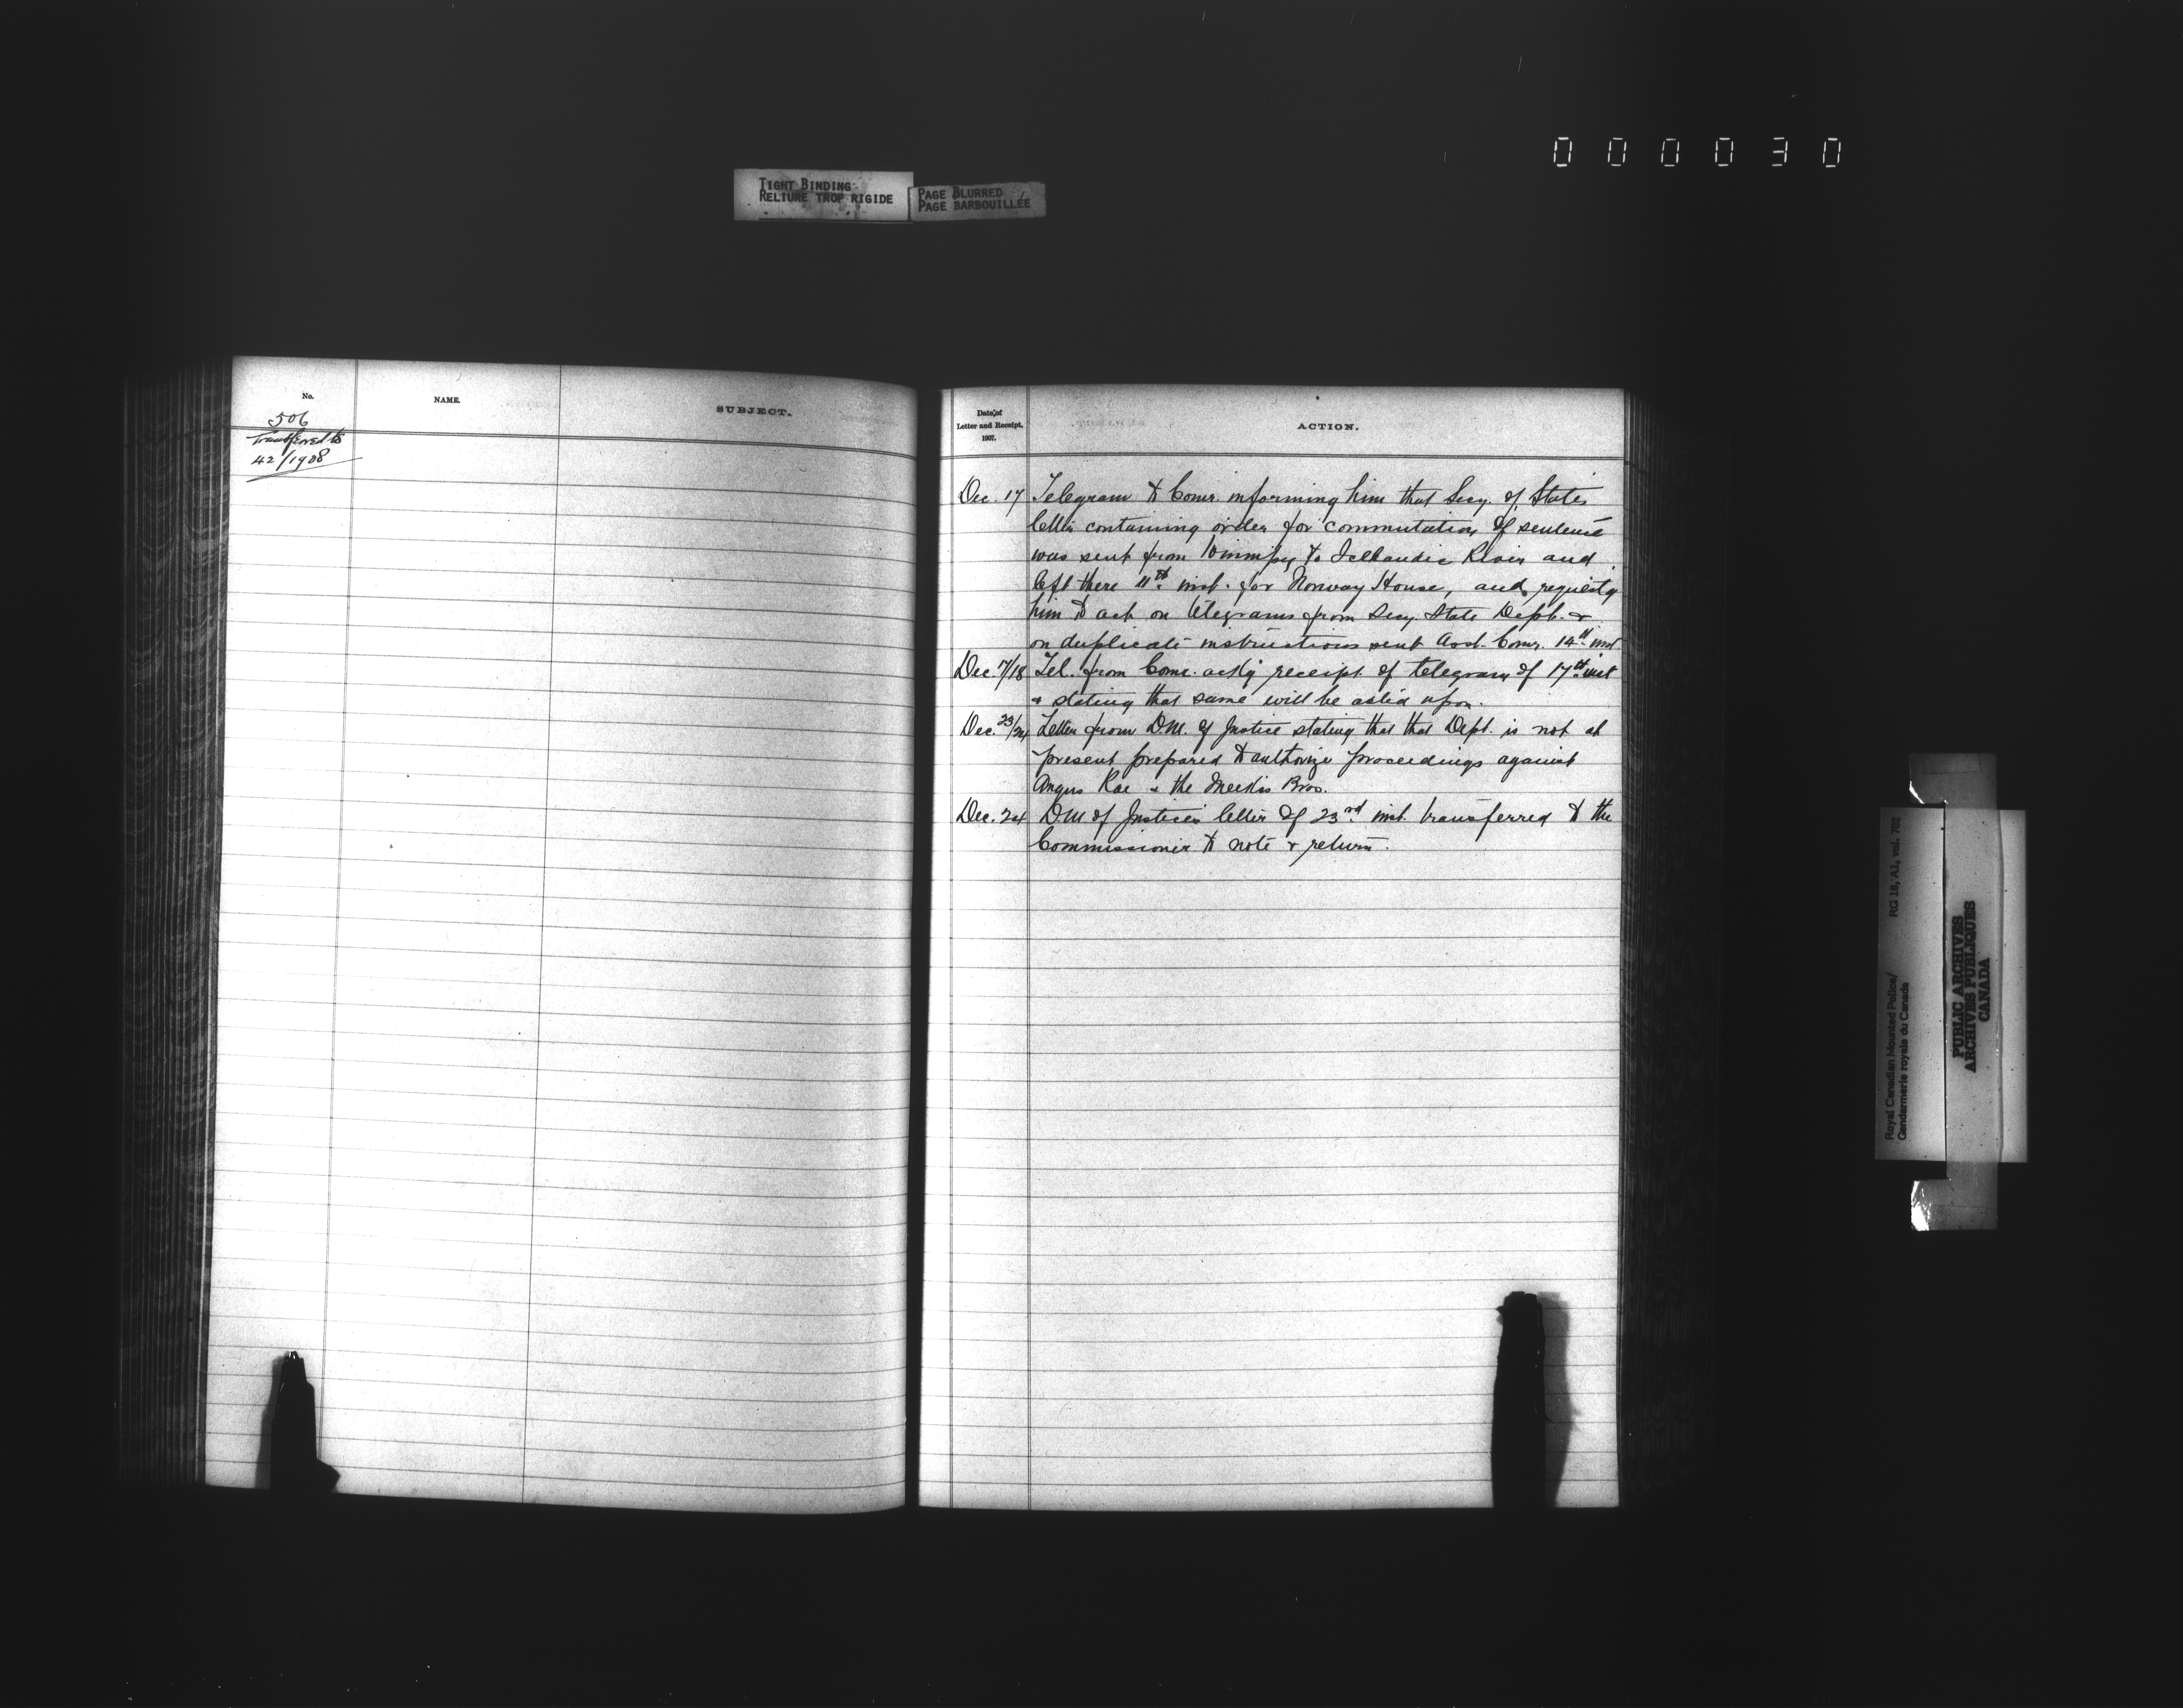 000030
TIGHT BINDING
RELIURE TROP RIGIDE
PAGE BLURRED
PAGE BARBOUILLÉE
No.
NAME.
SUBJECT.
506
Transferred to
42/1908
Date of
Letter and Receipt,
1907.
ACTION.
Dec. 17 Telegram to Comr. informing him that Secy. of State's
letter containing order for commutation of sentence
was sent from Winnipeg to Icelandic River and
left there 11th inst. for Norway House, and requestg
him to act on telegrams from Secy. State Dept. &
on duplicate instructions sent Asst. Comr. 14th inst
Dec. 17/18 Tel. from Comr. ackg receipt of telegram of 17th inst
& stating that same will be acted upon.
Dec. 23/24 Letter from D.M. of Justice stating that that Dept. is not at
present prepared to authorize proceedings against
Angus Rae & the Meekis Bros.
Dec. 24 DM of Justice's letter of 23rd inst. transferred to the
Commissioner to note & return.
Royal Canadian Mounted Police/
Gendarmerie royale du Canada
RG 18, A1, vol. 702
PUBLIC ARCHIVES
ARCHIVES PUBLIQUES
CANADA